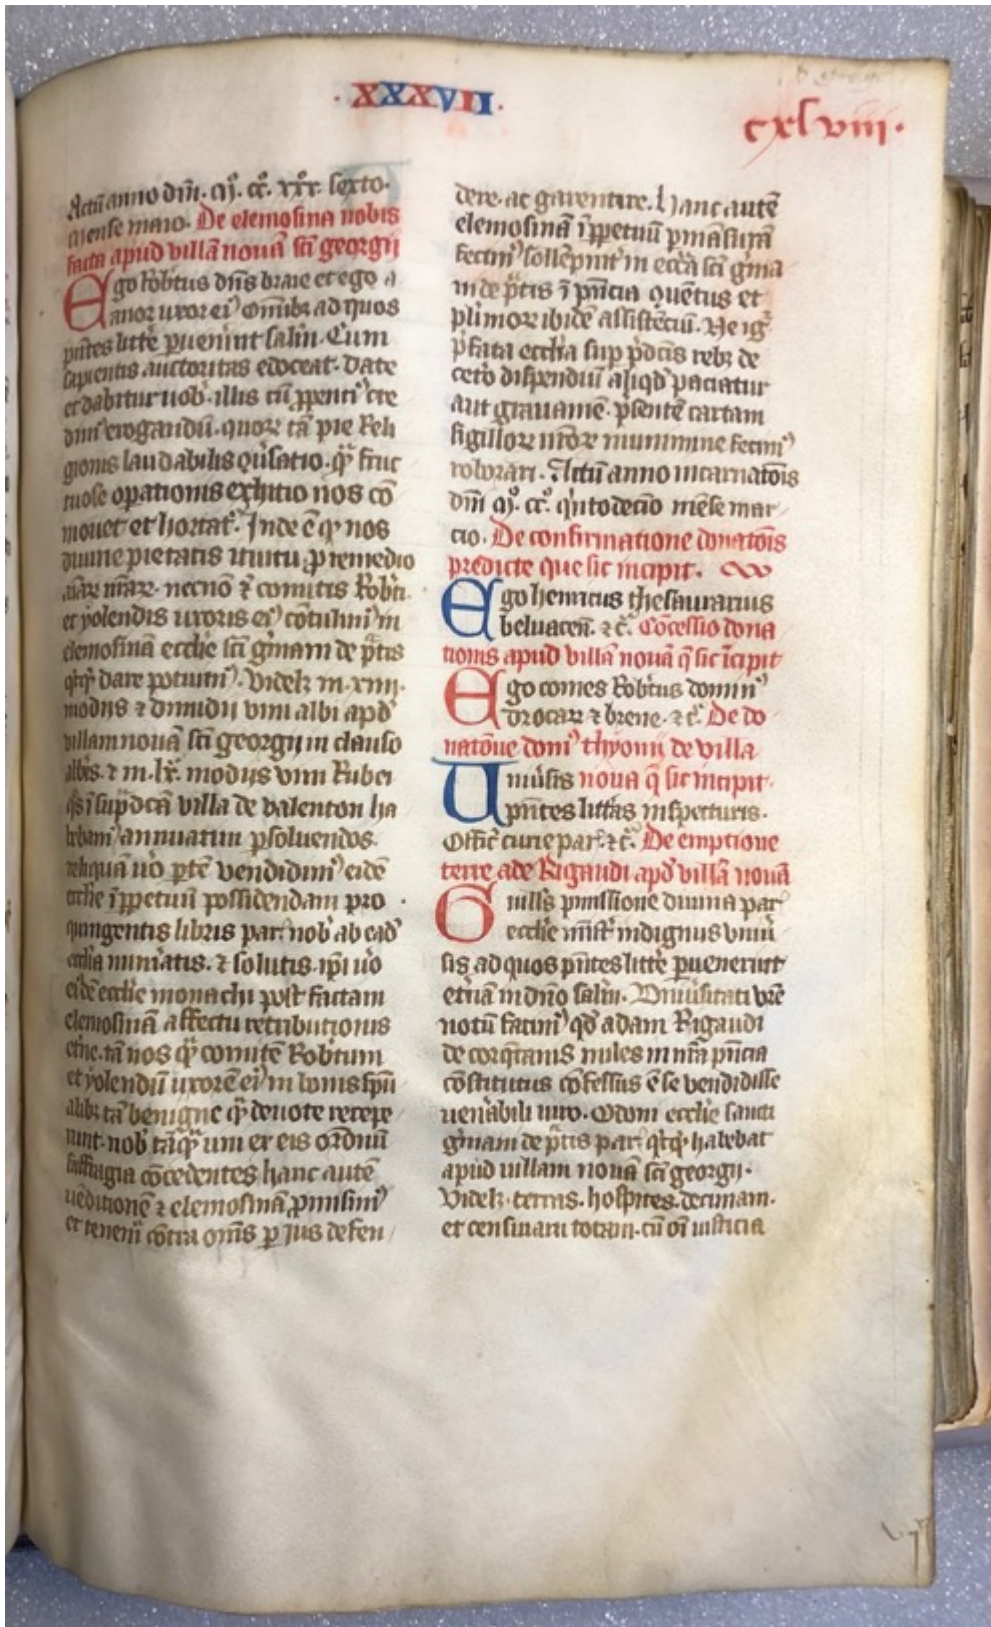 · XXXVII ·
cxlviii ·
Actū anno dn̄i. M̊. cc̊. xxx̊. sexto.
mense maio. De elemosina nobis
facta apud villā nouā sc̄i georgii
Ego Rob̄tus dn̄s braie et ego a
anor uxor ei9 Omīb; ad quos
p̄ntes litt̄e puenint salūt. Cum
sapientis auctoritas edoceat. Date
et dabitur uob̄. illis cū
dn̄i erogandū. quoꝝ tā pie Reli
gionis laudabilis
tuose opationis exhitio nos cō
mouet et hortat̄. Inde ē qꝫ nos
diuine pietatis ītuitu ꝓ remedio
n̄raꝝ. necnō ⁊ comitis Rob̄ti
et yolendis uxoris ei9 cōtulim9 in
elemosinā ecclie sc̄i gm̄am de p̄tis
qͥcqͥd dare potuim9. Videlꝫ m. xiiii.
modiis ⁊ dimidii vini albi apd̄
villam nouā sc̄i georgii in clauso
albis. ⁊ m. lx̊. modiis vini Rubei
qͦs ī sup̄dc̄ā villa de valenton ha
bebam9 annuatim ꝑsoluendos.
reliquā ūo ꝑtē vendidim9 eidē
ecclie īꝑpetuū possidendam pro
quingentis libris par. nob̄ ab eād
ecclīa nūiatis. ⁊ solutis. ip̄i ūo
eidē ecclie monachi post factam
elemosinā affectu retributionis
et̄ne. tā nos qꝫ comitē Rob̄tum
et yolendū uxorē ei9 in bonis sp̄u
alib; tā benigne qꝫ deuote recepe
runt. nob̄ tāqꝫ uni ex eis ordinū
suffragia cōcedentes hanc autē
uēditionē ⁊ elemosinā ꝓmisim9
et tenem̄ cōtra om̄s ꝑ ius defen
dere. ac garentire. Hanc autē
elemosinā īꝑpetuū ꝑmāsurā
fecim9 sollēpnit̄ in ecc̄a sc̄i gm̄a
ni de p̄tis ī p̄ncia Quētus et
plimoꝝ ibidē assistēciū. Ne igr̄
p̄fata ecclīa sup p̄dc̄is reb; de
cet̄o dispendiū aliqd̄ paciatur
aut grauamē. p̄sentē cartam
sigilloꝝ n̄roꝝ munimine fecim9
roborari. Actū anno incarnatōis
dn̄i M̊. cc̊. qͥntodecīo mēse mar
cio. De confirmatione donatōis
predicte que sic incipit.
Ego henricus thesaurarius
beluacen̄. ⁊ c̄. Cōcessio dona
tionis apud villā nouā q̄ sic īcipit
Ego comes Rob̄tus domin9
drocaꝝ ⁊ brene. ⁊ c̄. De do
natōne dom9 thyonii de villa
Uniūsis noua q̄ sic incipit.
p̄ntes litt̄as inspecturis.
Offic̄ curie par. ⁊ c̄. De emptione
terre ade Rigaudi apd̄ villā nouā
Guill̄s ꝑmissione diuina par
ecclie mīst̄ indignus uniū
sis ad quos p̄ntes litt̄e puenerint
et̄nā in dn̄o salūt. Vniūsitati vr̄e
notū facim9 qd̄ adam Rigaudi
de miles in nr̄a p̄ncia
cōstitutus cōfessus ē se vendidisse
uen̄abili uiro. Odoni ecclie sancti
gm̄am de p̄tis par. qͥcqͥd habebat
apud uillam nouā sc̄i georgii.
Videlꝫ. terras. hospites. decimam.
et censiuam totam. cū om̄i iusticia